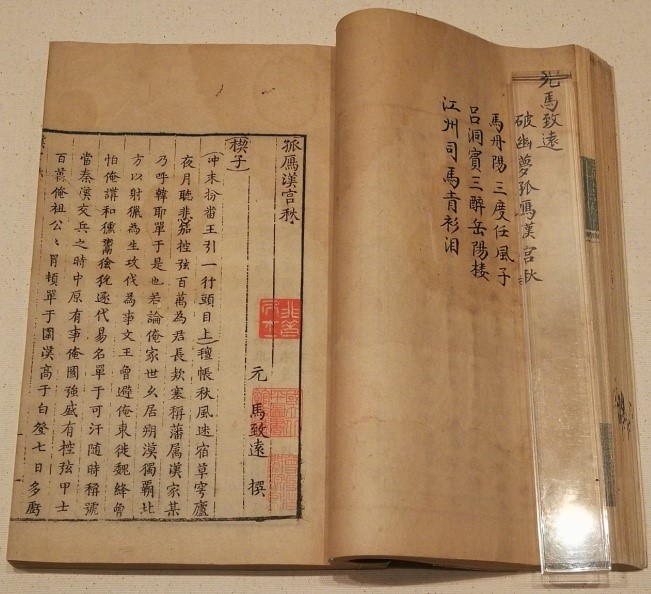 元馬致遠
破幽夢孤鴈漢宮秋
馬丹陽三度任風子
呂洞賓三醉岳陽楼
江州司馬青衫泪
孤鴈漢宮秋
元 馬致遠 撰
(楔子)
(冲末扮畨王引一行頭目上)氊帳秋風迷宿草穹廬
夜月聽悲笳控弦百萬為君長欵塞稱藩属漢家某
乃呼韓耶單于是也若論俺家世久居朔漠獨覇北
方以射獵為生攻伐為事文王曾避俺東徙魏絳曾
怕俺講和獯鬻獫狁逐代易名單于可汗随時稱號
當秦漢交兵之時中原有事俺國強盛有控弦甲士
百萬俺祖公〻冐頓單于圍漢高于白登七日多